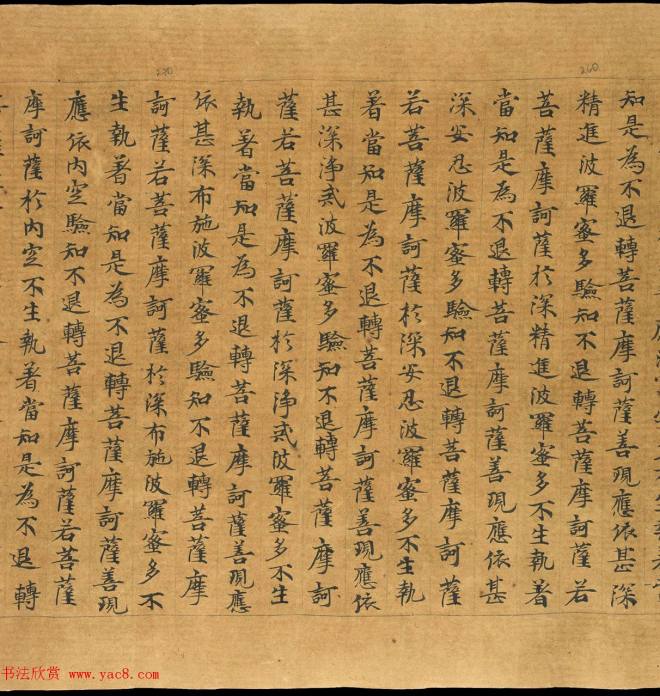 知是為不退轉菩薩摩訶薩善現應依甚深
精進波羅蜜多驗知不退轉菩薩摩訶薩若
菩薩摩訶薩於深精進波羅蜜多不生執著
當知是為不退轉菩薩摩訶薩善現應依甚
深安忍波羅蜜多驗知不退轉菩薩摩訶薩
若菩薩摩訶薩於深安忍波羅蜜多不生執
著當知是為不退轉菩薩摩訶薩善現應依
甚深淨戒波羅蜜多驗知不退轉菩薩摩訶
薩若菩薩摩訶薩於深淨戒波羅蜜多不生
執著當知是為不退轉菩薩摩訶薩善現應
依甚深布施波羅蜜多驗知不退轉菩薩摩
訶薩若菩薩摩訶薩於深布施波羅蜜多不
生執著當知是為不退轉菩薩摩訶薩善現
應依內空驗知不退轉菩薩摩訶薩若菩薩
摩訶薩於內空不生執著當知是為不退轉
260
270
书法欣赏 www.yac8.com